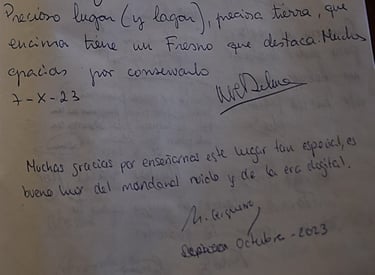 Precioso lugar (y lagar), preciosa tierra, que
encima tiene un Fresno que destaca. Muchas
gracias por conservarlo
7-X-23
Muchas gracias por enseñarnos este lugar tan especial, es
bueno huir del mundanal ruido y de la era digital.
Octubre - 2023